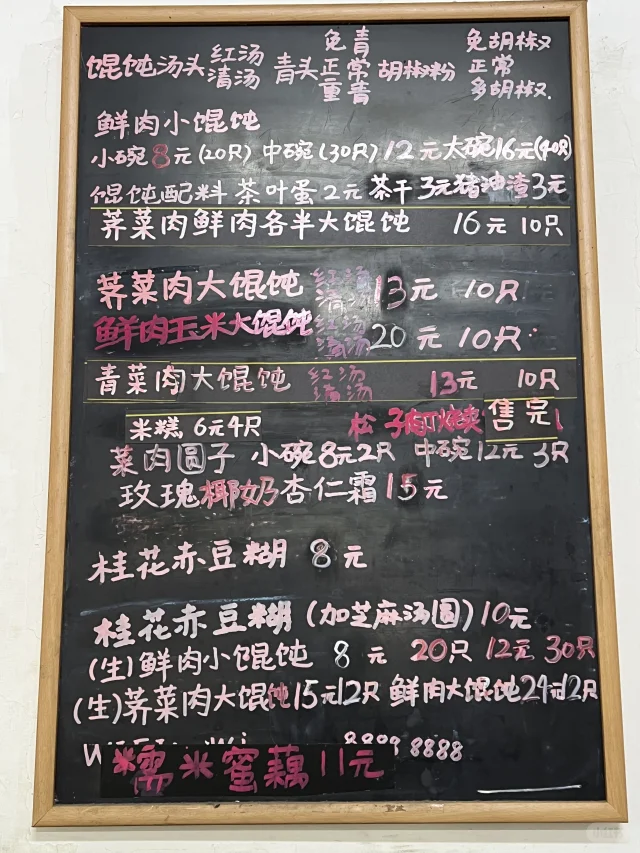 免青 免胡椒
馄饨汤头 红汤 青头 正常 胡椒粉 正常
清汤 重青 多胡椒
鲜肉小馄饨
小碗8元(20只) 中碗(30只)12元 大碗16元(40只)
馄饨配料 茶叶蛋2元 茶干3元 猪油渣3元
荠菜肉鲜肉各半大馄饨 16元 10只
荠菜肉大馄饨 红汤 清汤 13元 10只
鲜肉玉米大馄饨 红汤 清汤 20元 10只
青菜肉大馄饨 红汤 清汤 13元 10只
米糕 6元4只 松子肉丁烧卖 售完
菜肉圆子 小碗8元2只 中碗12元 3只
玫瑰椰奶杏仁霜15元
桂花赤豆糊 8元
桂花赤豆糊(加芝麻汤圆)10元
(生)鲜肉小馄饨 8元 20只 12元 30只
(生)荠菜肉大馄饨15元12只 鲜肉大馄饨24元12只
8888
糯米蜜藕11元